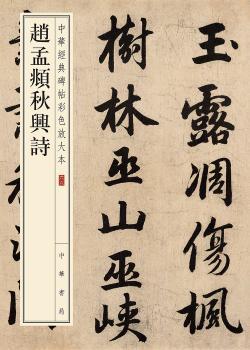 玉露凋傷楓
樹林巫山巫峽
中華經典碑帖彩色放大本
趙孟頫秋興詩
中華書局